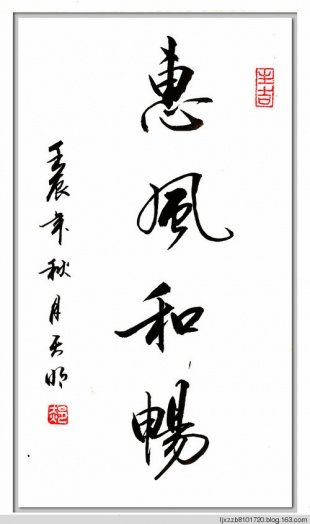 惠風和暢
壬辰年秋月天明
ljxzzb8101720.blog.163.com